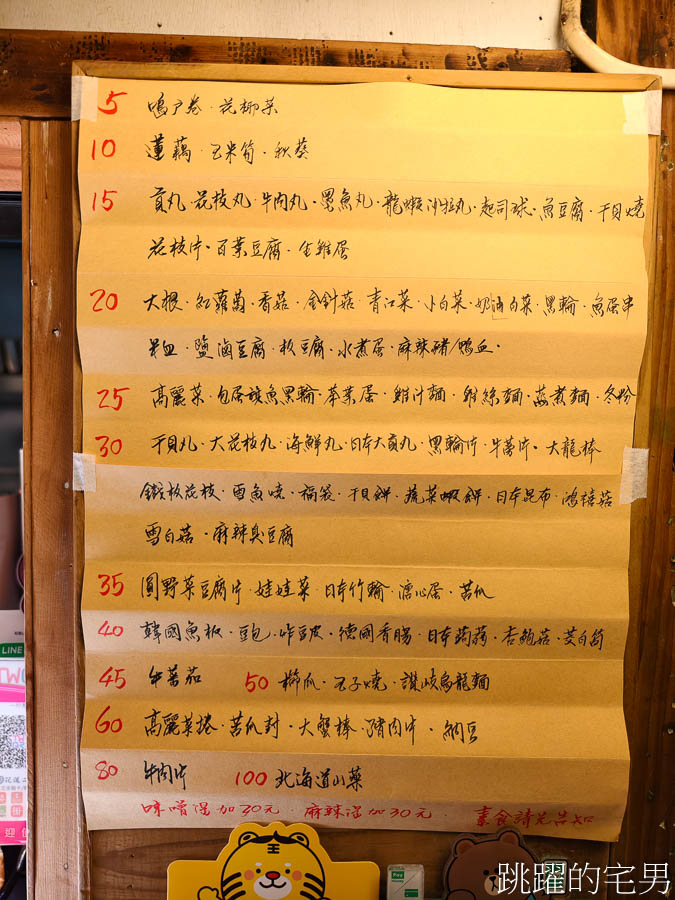 5 鳴戶卷．花椰菜
10 蓮藕．玉米筍．秋葵
15 貢丸．花枝丸．牛肉丸．墨魚丸．龍蝦沙拉丸．起司球．魚豆腐．干貝燒
花枝片．百葉豆腐．生雞蛋
20 大根．紅蘿蔔．香菇．金針菇．青江菜．小白菜．奶油白菜．黑輪．魚蛋串
米血．鹽滷豆腐．板豆腐．水煮蛋．麻辣豬/鴨血．
25 高麗菜．包蛋旗魚黑輪．茶葉蛋．雞汁麵．雞絲麵．蒸煮麵．冬粉
30 干貝丸．大花枝丸．海鮮丸．日本大貢丸．黑輪片．牛蒡片．大龍棒
鐵板花枝．雪魚燒．福袋．干貝餅．蔬菜蝦餅．日本昆布．鴻禧菇
雪白菇．麻辣臭豆腐
35 圓野菜豆腐片．娃娃菜．日本竹輪．溏心蛋．苦瓜
40 韓國魚板．豆包．炸豆皮．德國香腸．日本蒟蒻．杏鮑菇．茭白筍
45 牛蕃茄 50 櫛瓜．玉子燒．讚岐烏龍麵
60 高麗菜捲．苦瓜封．大蟹棒．豬肉片．納豆
80 牛肉片 100 北海道山藥
味噌湯加30元．麻辣湯加30元．素食請先告知
LINE
跳躍的宅男